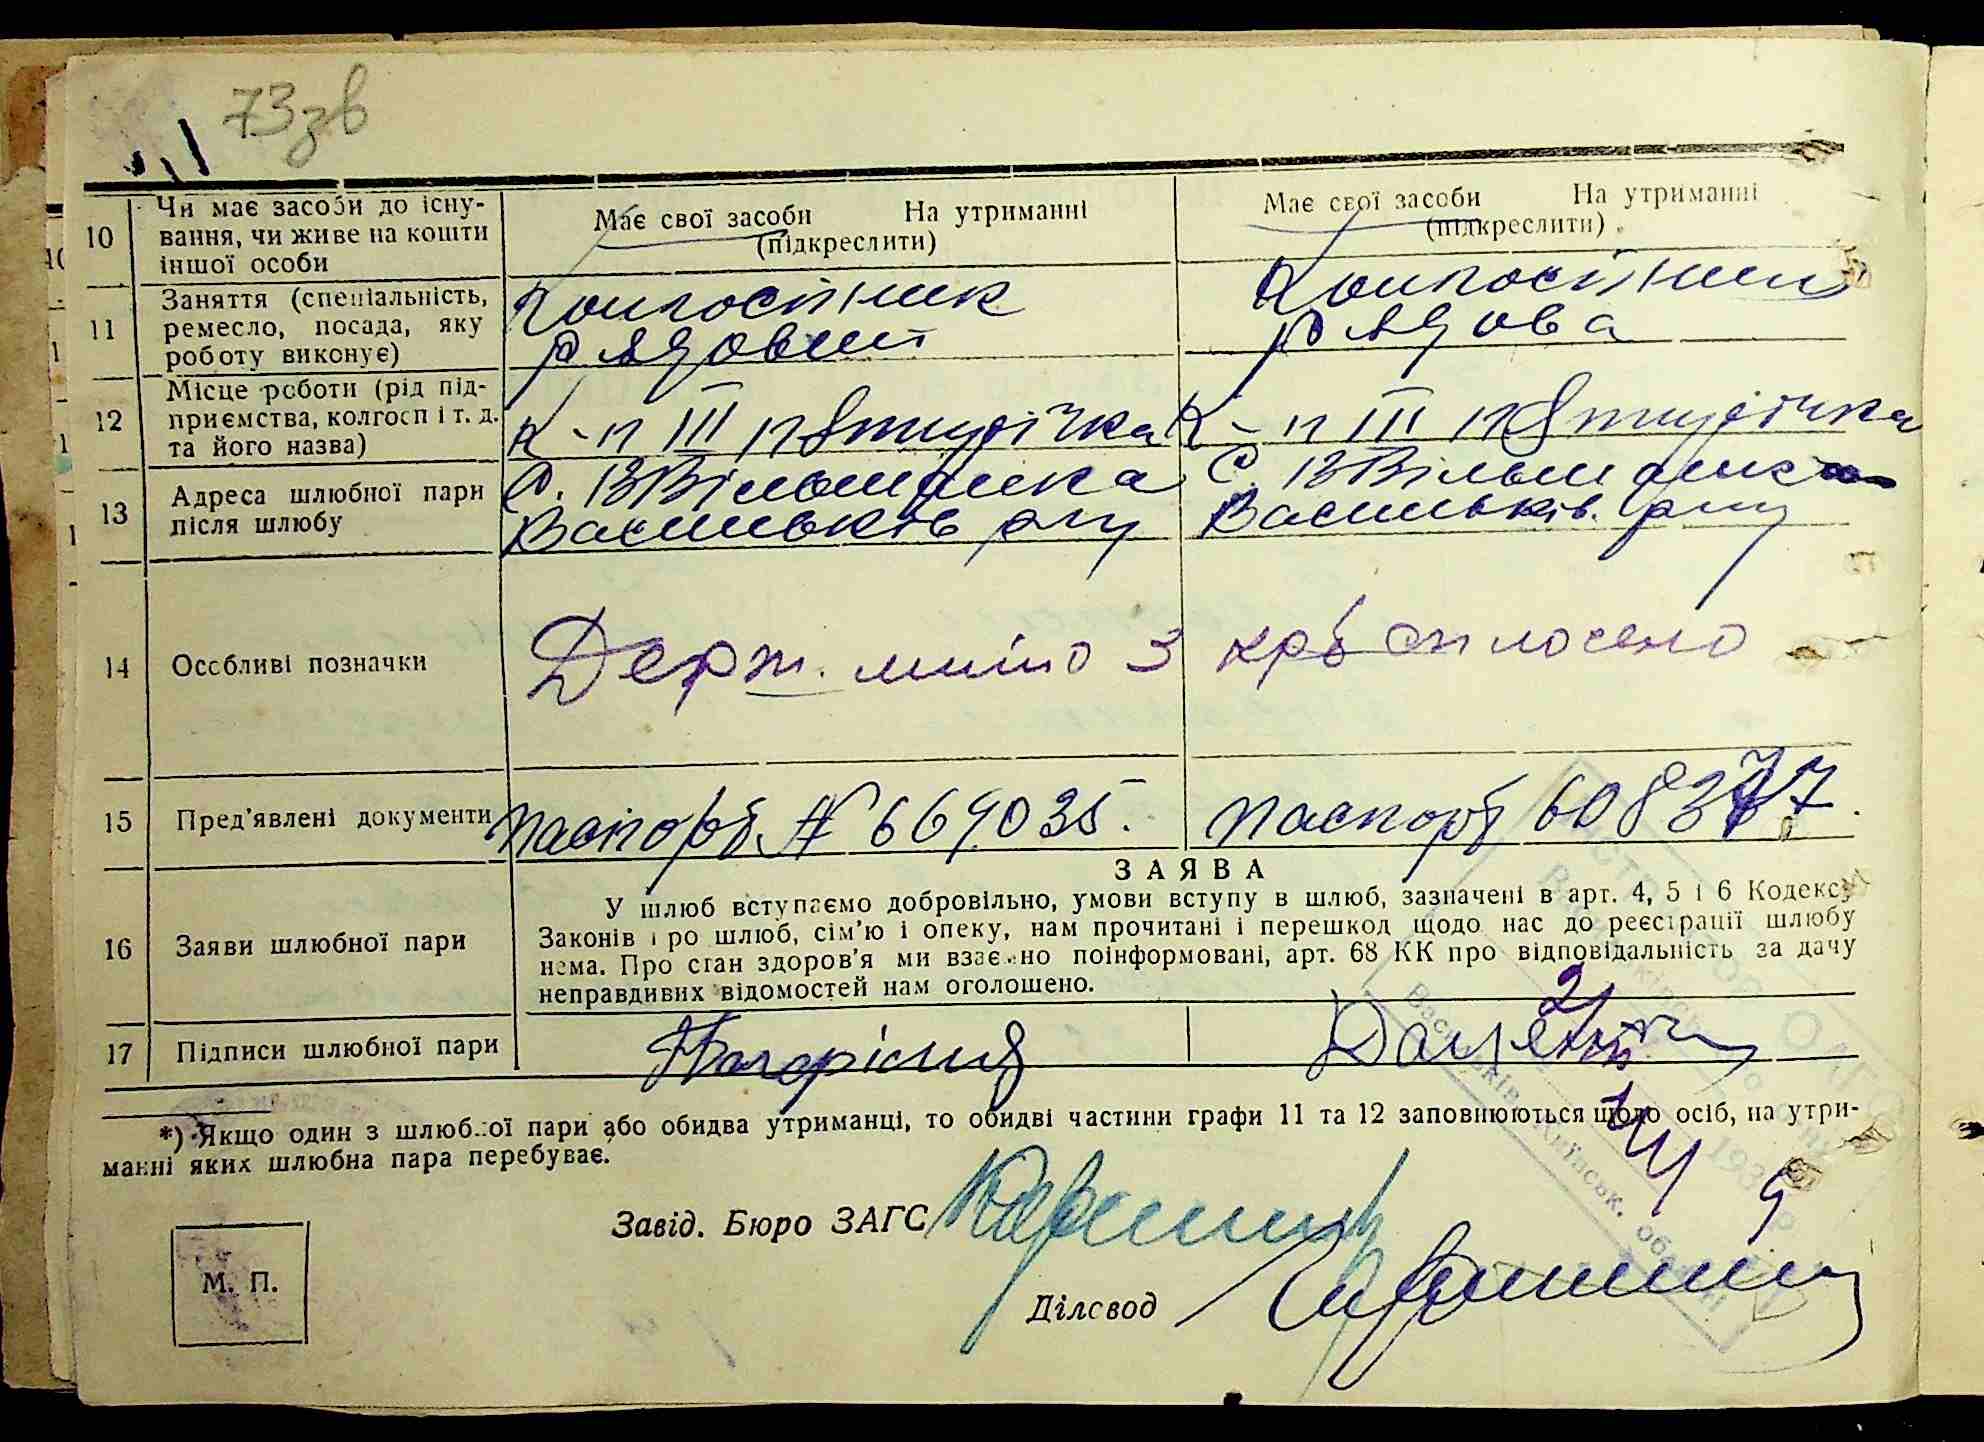 73зв
10 Чи має засоби до існу-
вання, чи живе на кошти
іншої особи
Має свої засоби На утриманні
(підкреслити)
Має свої засоби На утриманні
(підкреслити)
11 Заняття (спеціальність,
ремесло, посада, яку
роботу виконує)
Колгоспник
рядовий
Колгоспниц
рядова
12 Місце роботи (рід під-
приємства, колгосп і т. д.
та його назва)
К-п ІІІ пятирічка
К-п ІІІ пятирічка
13 Адреса шлюбної пари
після шлюбу
С. ВВільшанка
Васильків рну
С. ВВільшанка
Васильків. рну
14 Особливі позначки
Держ. мито 3 крб сплочено
15 Пред'явлені документи
паспорт № 669035.
паспорт 608377.
16 Заяви шлюбної пари
ЗАЯВА
У шлюб вступаємо добровільно, умови вступу в шлюб, зазначені в арт. 4, 5 і 6 Кодексу
Законів про шлюб, сім'ю і опеку, нам прочитані і перешкод щодо нас до реєстрації шлюбу
нема. Про стан здоров'я ми взаємно поінформовані, арт. 68 КК про відповідальність за дачу
неправдивих відомостей нам оголошено.
17 Підписи шлюбної пари
*) Якщо один з шлюбної пари або обидва утриманці, то обидві частини графи 11 та 12 заповнюються щодо осіб, на утри-
манні яких шлюбна пара перебуває.
Завід. Бюро ЗАГС
Діловод
М. П.